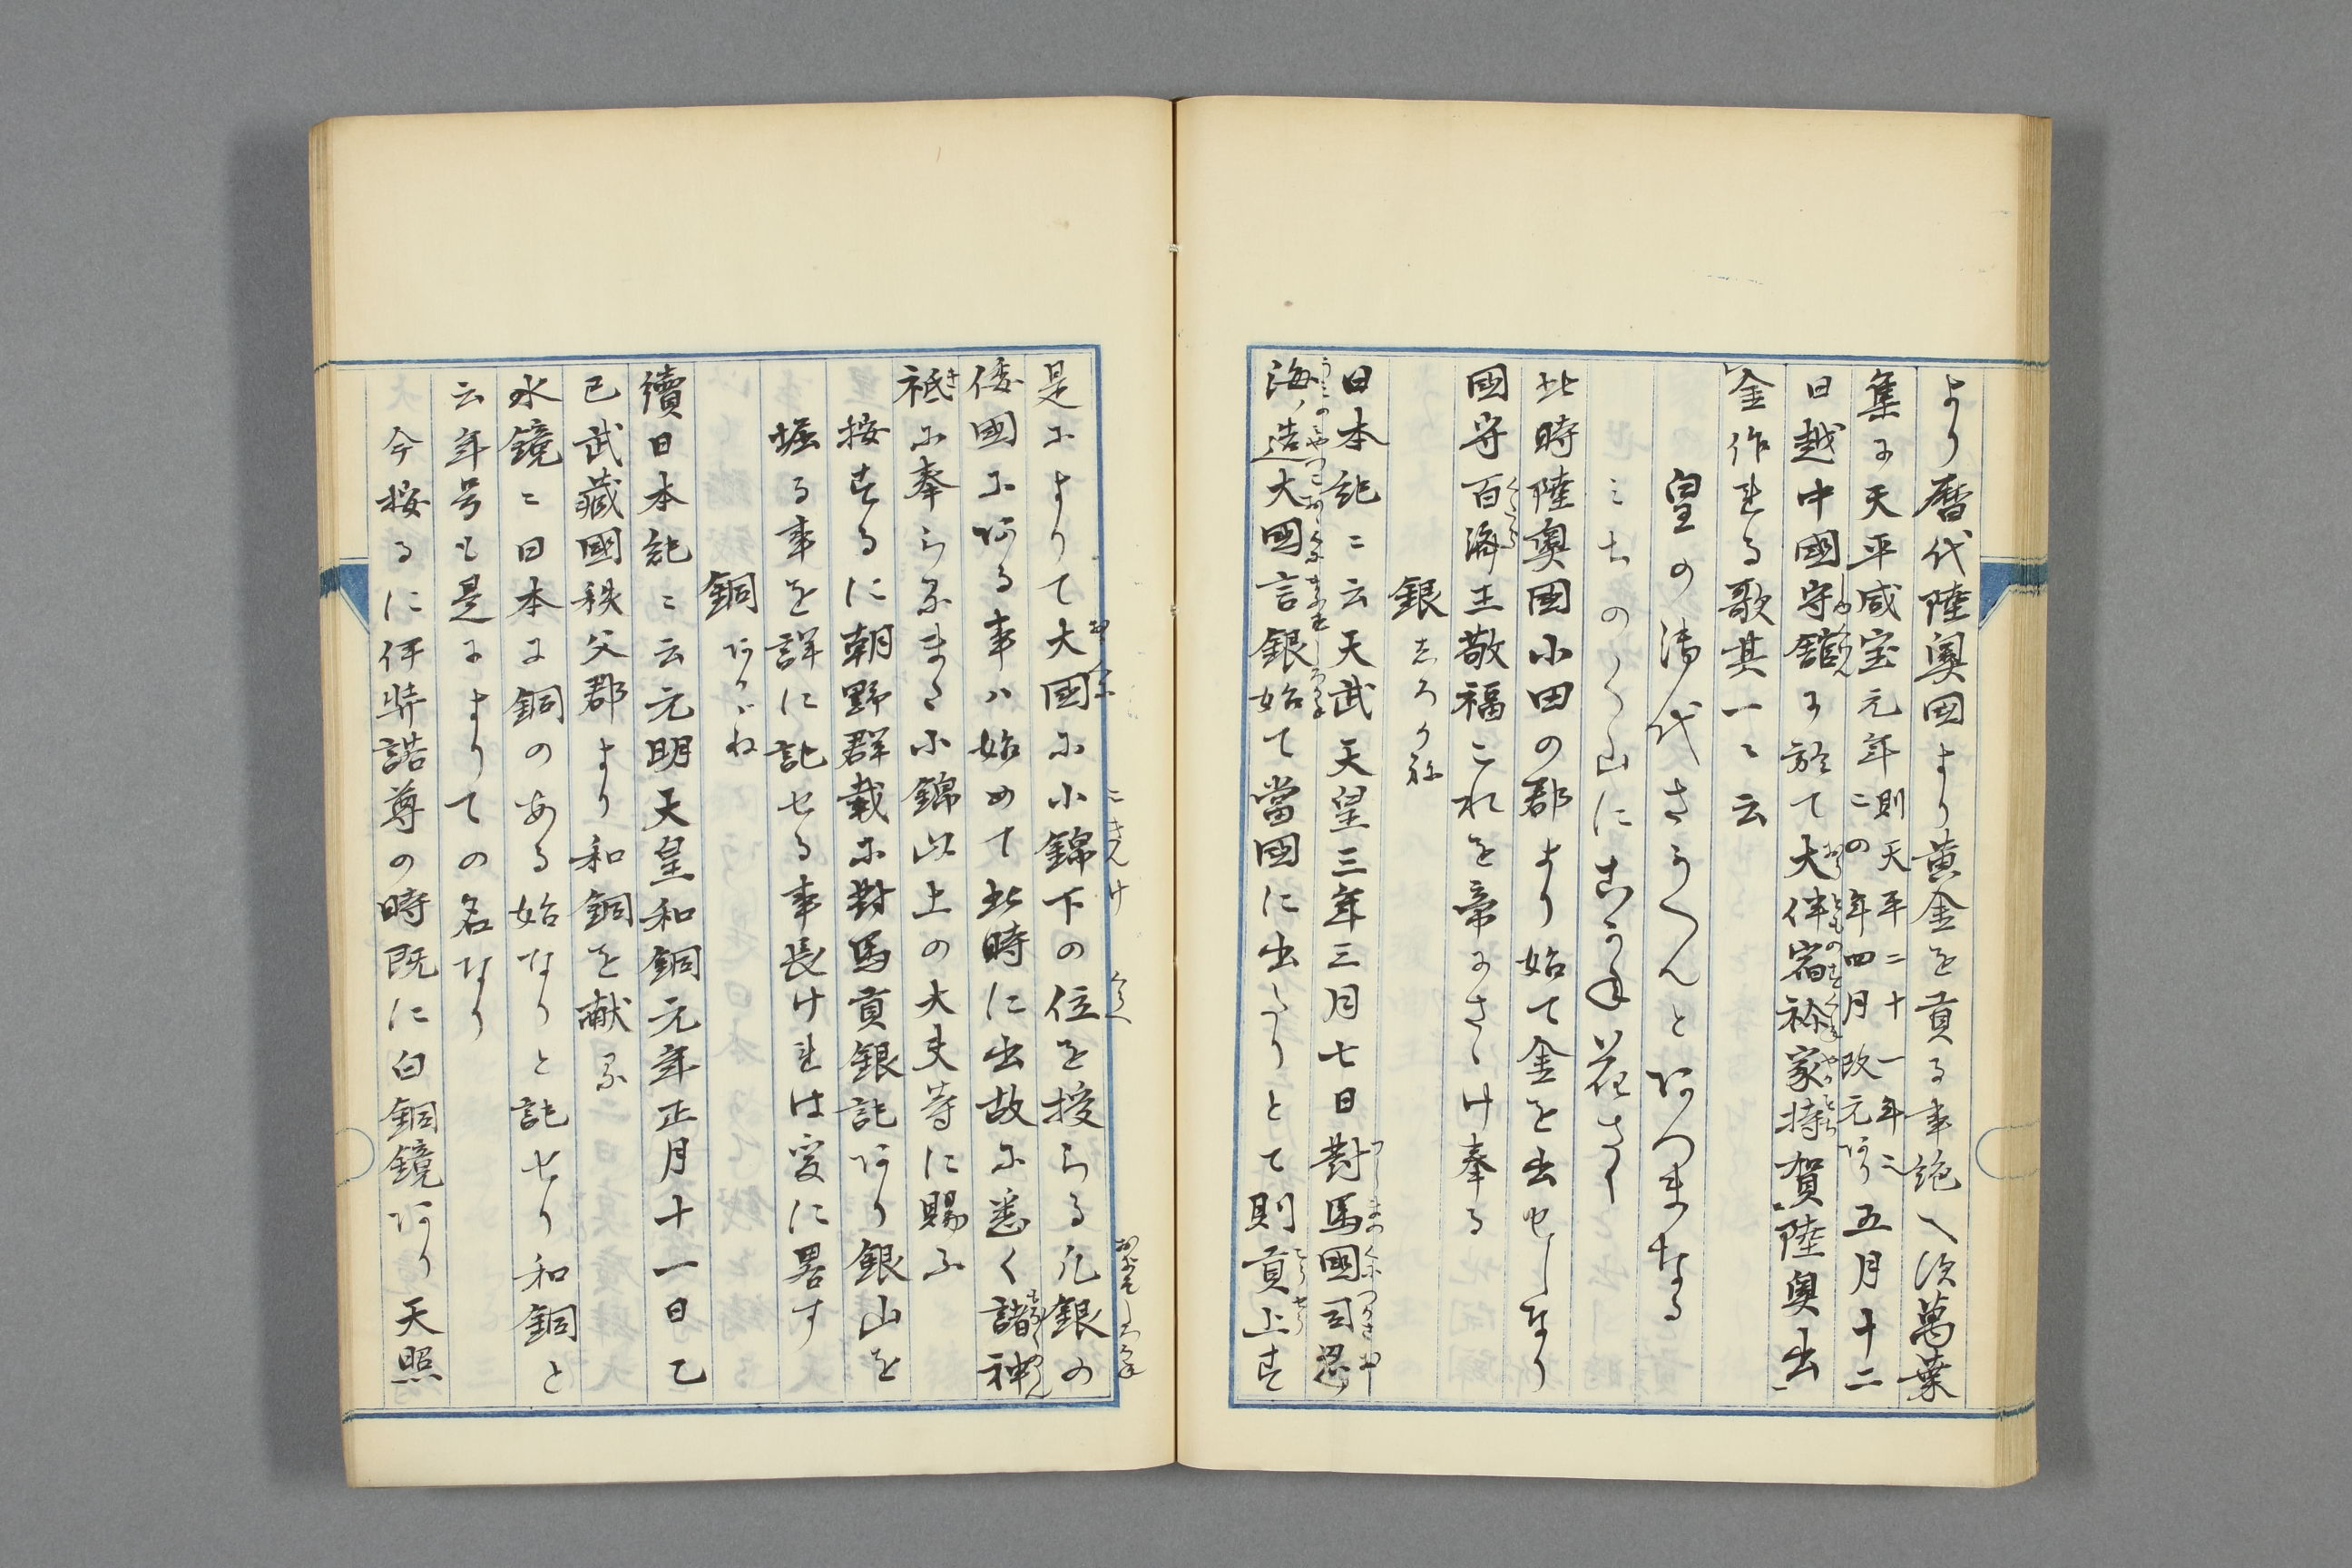 より暦代陸奥国より黄金を貢る事絶へ須萬葉
集に天平感宝元年 則天平二十一年二二の年四月改元あり 五月十二
日越中國守舘に於て大伴宿祢家持賀陸奥出
金作れる歌其一ニ云
皇の御代さかへんとあつまなる
ミちのく山にこかね花さく
此時陸奥國小田の郡より始て金を出せしなり
國守百済王敬福これを帝にさゝけ奉る
銀 志ろかね
日本紀ニ云天武天皇三年三月七日對馬國司忍
海ノ造大國言銀始て當國に出たりとて則貢上す
是によりて大國に小錦下の位を授らる凡銀の
倭國にある事ハ始めて此時に出故に悉く諸神
祇に奉らるまた小錦以上の大夫等に賜ふ
按するに朝野群載に對馬貢銀記あり銀山を
堀る事を詳に記せる事長けれは爰に畧す
銅 あかゞね
續日本記ニ云元明天皇和銅元年正月十一日乙
巳武藏國秩父郡より和銅を献る
水鏡ニ日本に銅のある始なりと記せり和銅と
云年号も是によりての名なり
今按るに伊弉諾尊の時既に白銅鏡あり天照